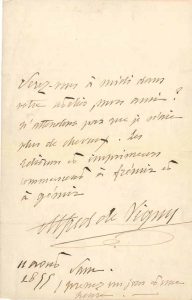 Serez-vous à midi dans
votre atelier, mon ami ?
N'attendons pas que je n'aie
plus de cheveux. Les
éditeurs et imprimeurs
commencent à frémir et
à gémir
Alfred de Vigny
11 août
1855